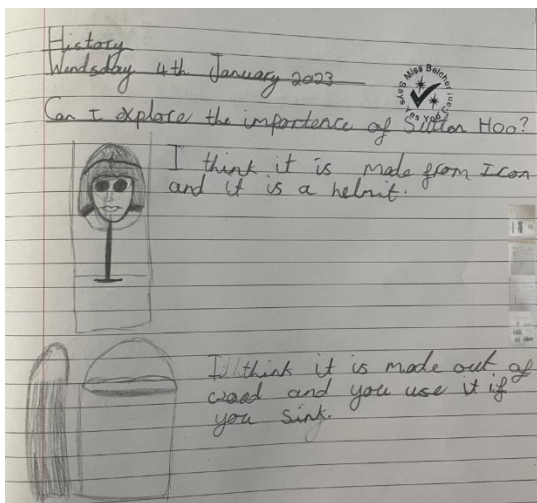 History
Wendsday 4th January 2023
Says Miss Belcher
Yes You Can!
Can I explore the importence of Sutton Hoo?
I think it is made from Icon
and it is a helmit.
I think it is made out of
wood and you use it if
you sink.